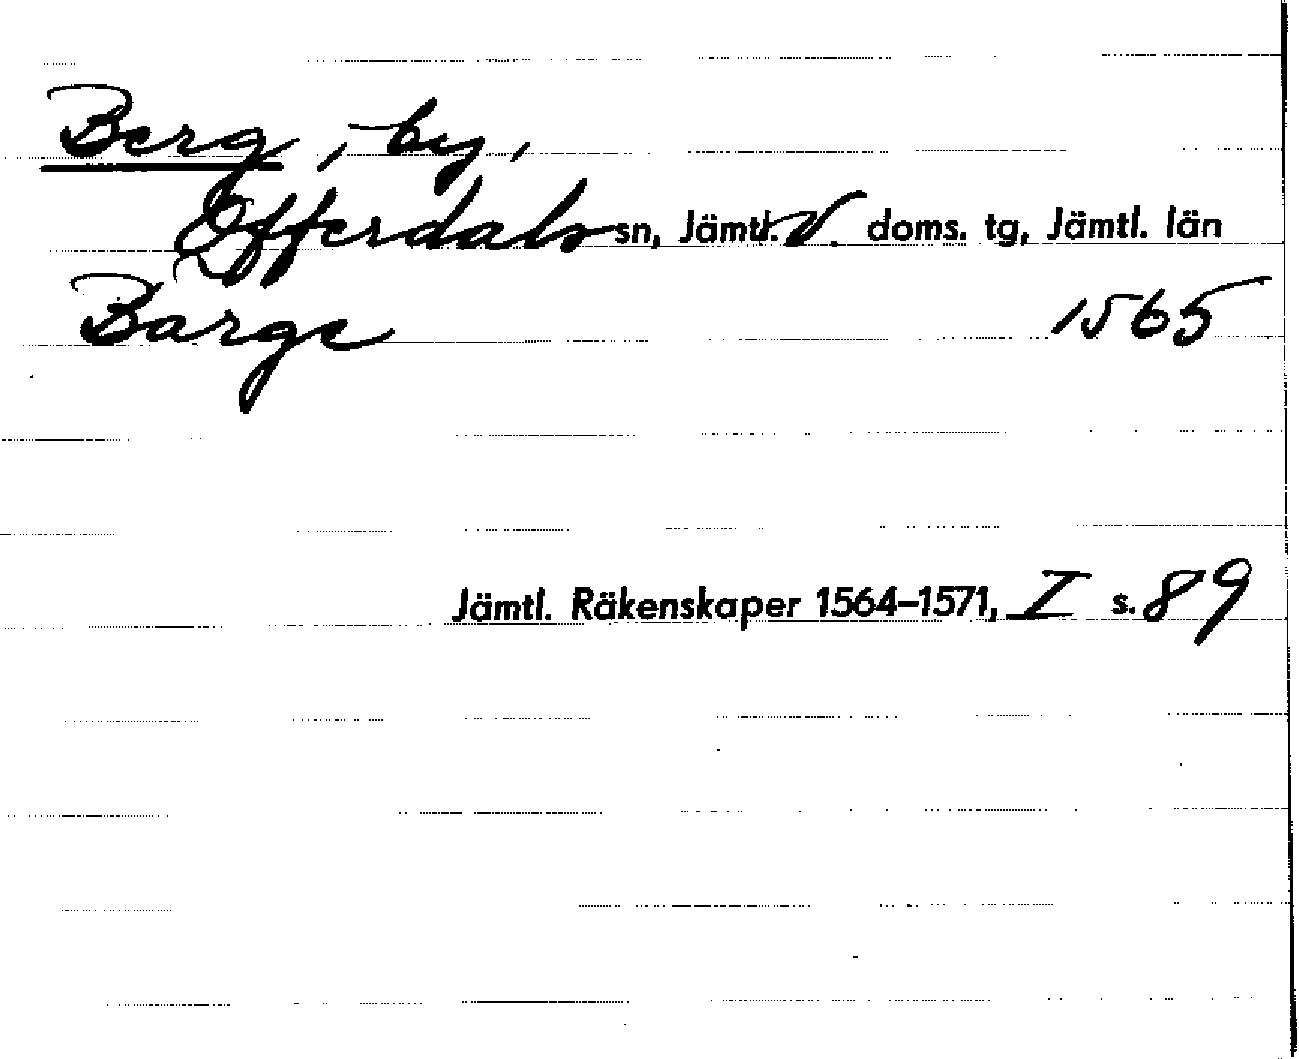 Berg, by,
Offerdals sn, Jämtl. V. doms. tg, Jämtl. län
Barge 1565
Jämtl. Räkenskaper 1564–1571, I s. 89